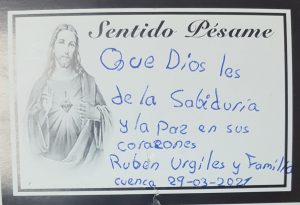 Sentido Pésame
Que Dios les
de la Sabiduria
y la Paz en sus
corazones
Rubén Urgiles y Familia
cuenca 29-03-2021